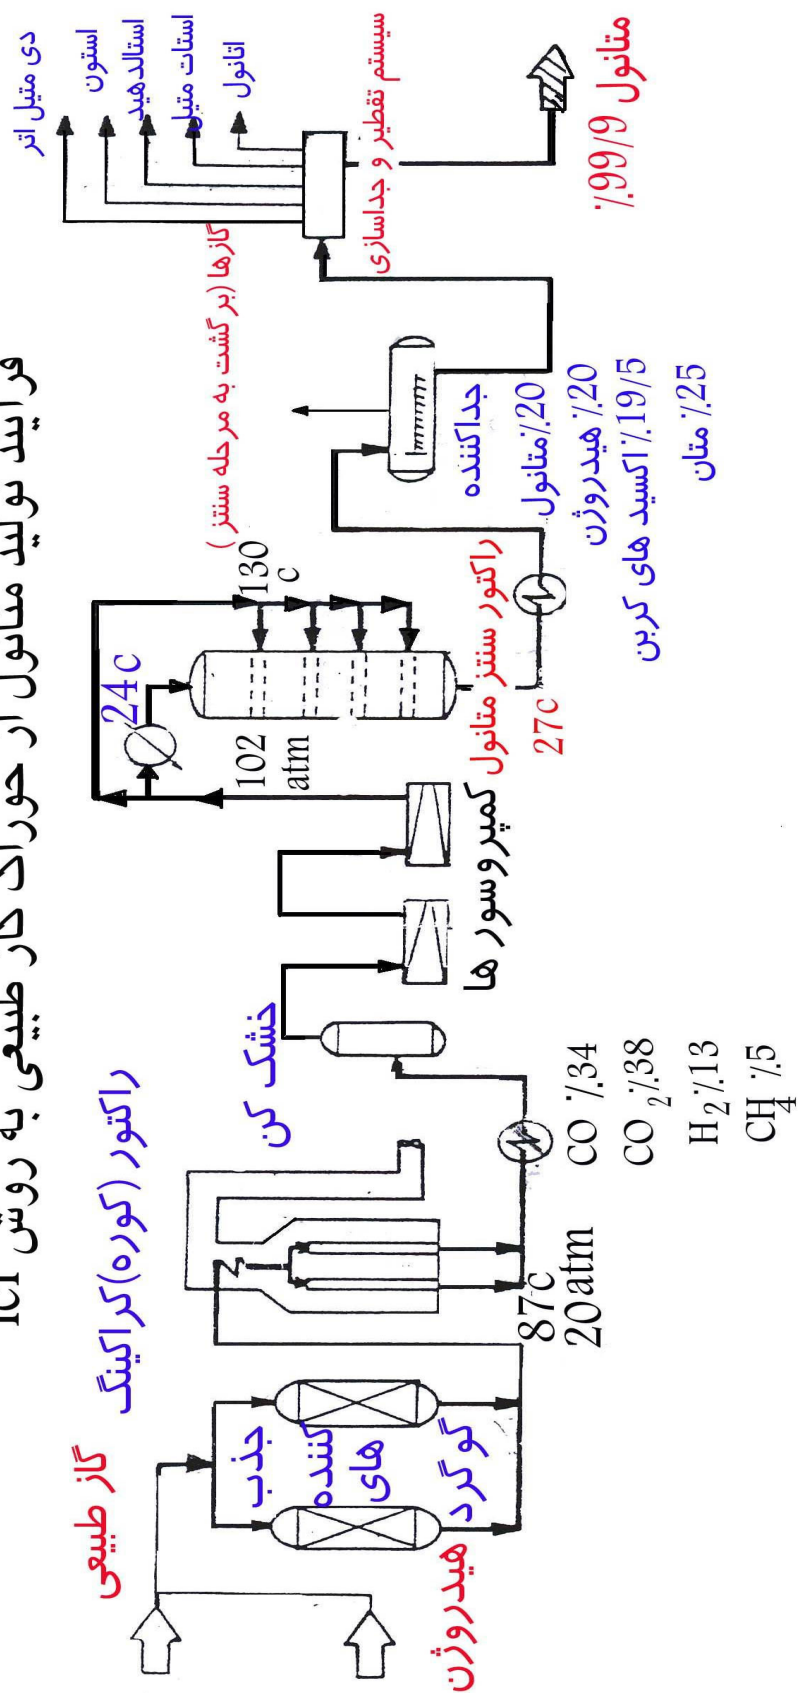 فرایند تولید متانول از خوراک گاز طبیعی به روش ICI
گاز طبیعی
هیدروژن
جذب
کننده
های
گوگرد
راکتور (کوره)کراکینگ
87c
20atm
CO ٪34
CO2٪38
H2٪13
CH4٪5
خشک کن
کمپروسور ها
24c
102
atm
130
c
راکتور سنتز متانول
27c
گازها (بر گشت به مرحله سنتز )
جداکننده
20٪متانول
20٪ هیدروژن
19/5٪ اکسید های کربن
25٪ متان
سیستم تقطیر و جداسازی
دی متیل اتر
استون
استالدهید
استات متیل
اتانول
متانول 99/9٪